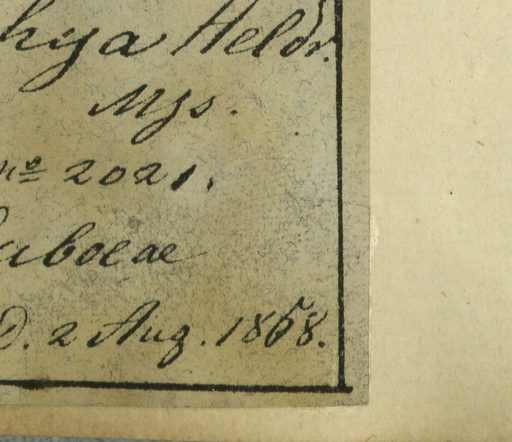 hya Heldr.
Mss.
nº 2021.
aboeae
D. 2 Aug. 1868.